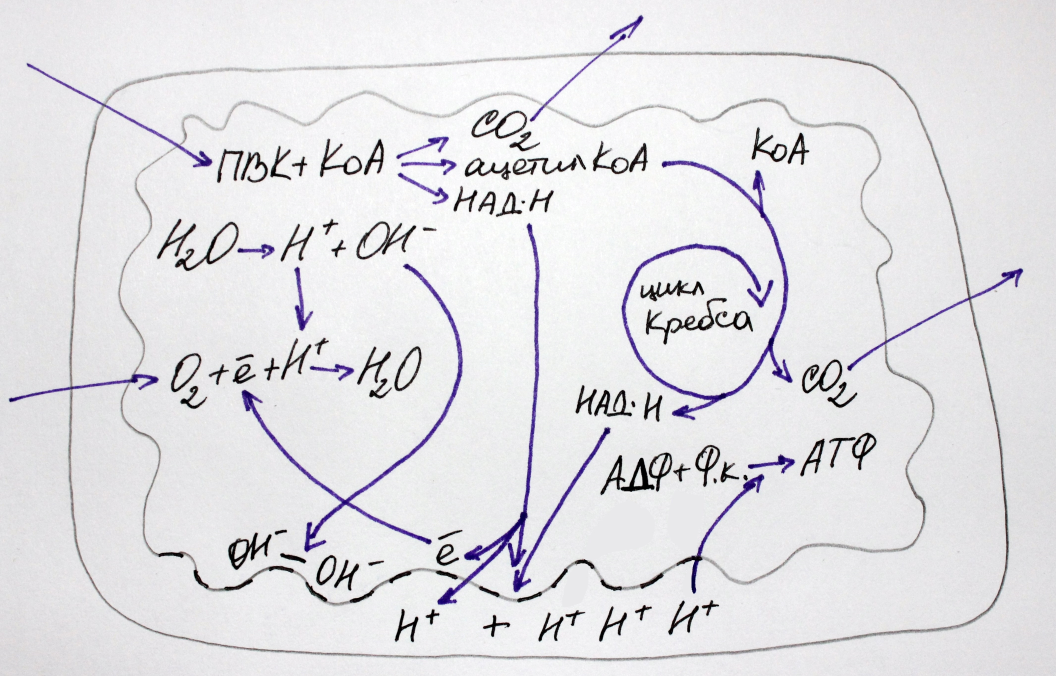 CO₂
ПВК + КоА
ацетил КоА
КоА
НАД·Н
H₂O → H⁺ + OH⁻
цикл
Кребса
O₂ + ē + H⁺ → H₂O
CO₂
НАД·Н
АДФ + Ф.к. → АТФ
OH⁻
OH⁻
ē
H⁺ + H⁺ H⁺ H⁺